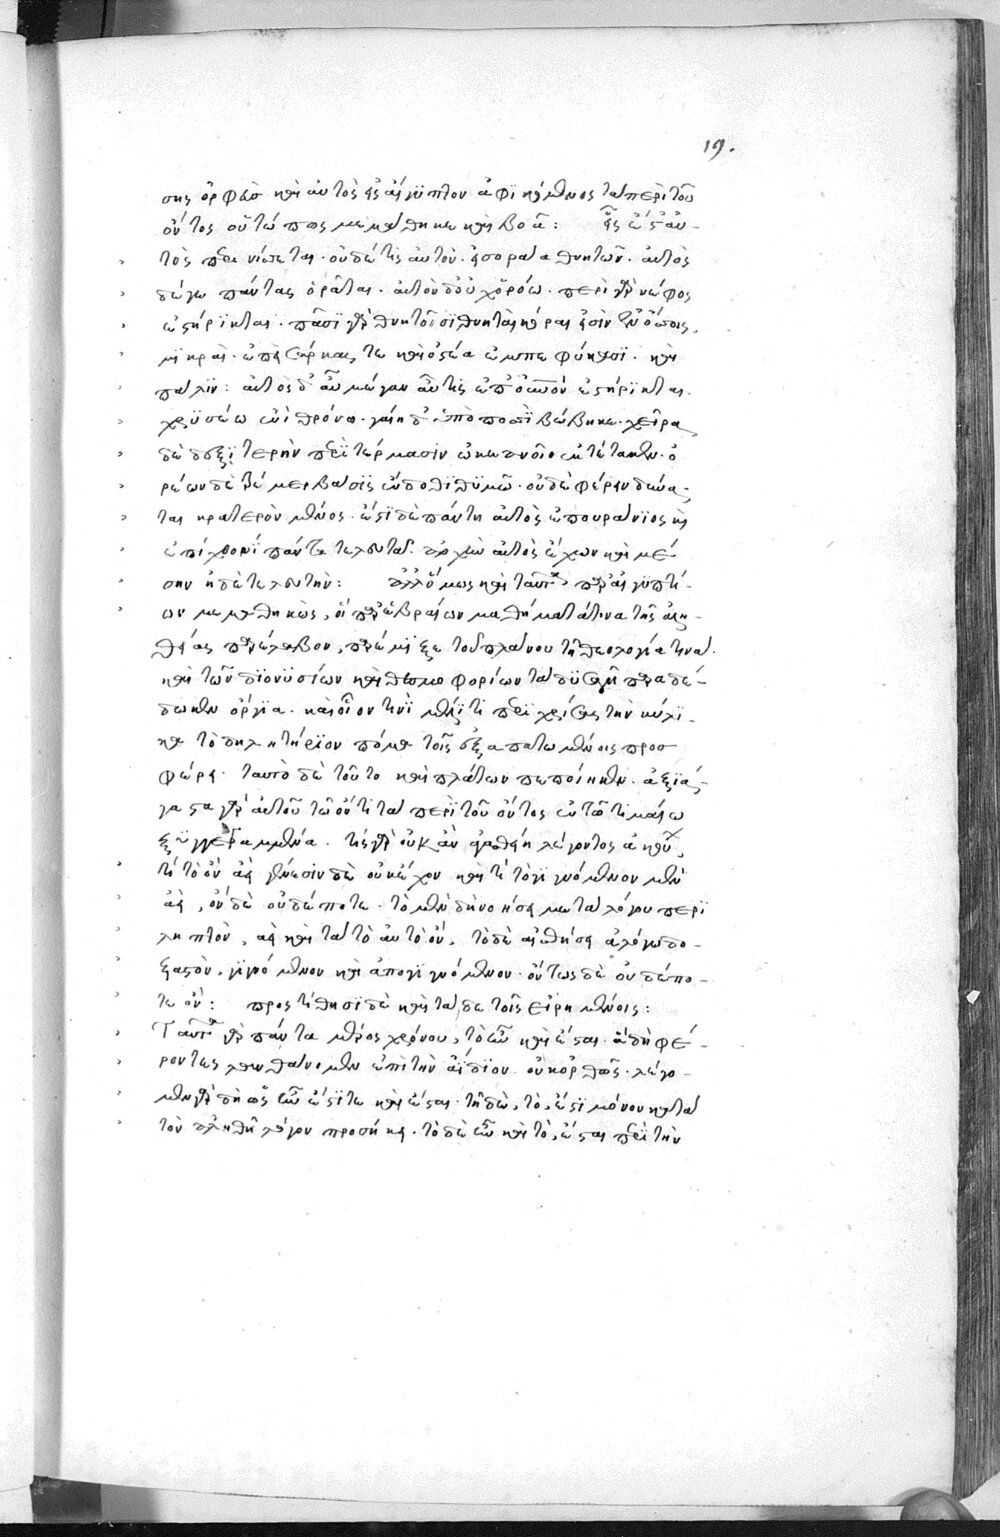 σης ὀρφεὺς καὶ αὐτὸς εἰς αἴγυπτον ἀφικόμενος τὰ περὶ τοῦ
ὄντος οὕτω πως μεμάθηκε καὶ βοᾶ: εἷς ἔστ' αὐ-
τὸς περινίσεται· οὐδέ τις αὐτὸν εἰσοράα θνητῶν· αὐτὸς
δέ γε πάντας ὁρᾶται. αὐτὸν δ' οὐχ ὁρόω· περὶ γὰρ νέφος
ἐστήρικται· πᾶσι γὰρ θνητοῖσι θνηταὶ κόραι εἰσὶν ἐν ὄσσοις,
μικραὶ· ἐπεὶ σάρκες τε καὶ ὀστέα ἐμπεφύκασι· καὶ
πάλιν: αὐτὸς δ' αὖ μέγαν αὖτις ἐπ' οὐρανὸν ἐστήρικται.
χρυσέω ἐνὶ θρόνω· γαίη δ' ὑπὸ ποσσὶ βέβηκε· χεῖρα
δὲ δεξιτερὴν περὶ τέρμασιν ὠκεανοῖο ἐκτέτακεν· ὀ
ρέων δὲ τρέμει βάσις ἔνδοθι θυμῶ· οὐδὲ φέρειν δύνα-
ται κρατερὸν μένος· ἔστι δὲ πάντη αὐτὸς ἐπουράνιος καὶ
ἐπὶ χθονὶ πάντα τελευτᾶ· ἀρχὴν αὐτὸς ἔχων καὶ μέ
σην ἠδὲ τελευτήν: ἀλλ' ὅμως καὶ ταῦτα παρ' αἰγυπτί-
ων μεμαθηκὼς, οἳ παρ' ἑβραίων μαθήματα τινα τῆς ἀλη-
θείας παρέλαβον, παρέμιξε τοῦ πλάνου τῆ θεολογία τινά.
καὶ τῶν διονυσίων καὶ θεσμοφορίων τὰ δυσαγῆ παραδέ-
δωκεν ὄργια· καὶ οἷόν τινι μέλιτι περιχρίσας τὴν κύλι-
κα τὸ δηλητήριον πόμα τοῖς ἐξαπατωμένοις προσ
φέρει. ταυτὸ δὲ τοῦτο καὶ πλάτων πεποίηκεν. ἀξιά-
γαστα γὰρ αὐτοῦ τῶ ὄντι τὰ περὶ τοῦ ὄντος ἐν τῶ τιμαίω
ξυγγεγραμμένα. τίς γὰρ οὐκ ἂν ἀγασθείη λέγοντος ἀκούων,
τί τὸ ὂν ἀεὶ γένεσιν δὲ οὐκ ἔχον καὶ τί τὸ γιγνόμενον μὲν
ἀεὶ, ὂν δὲ οὐδέποτε· τὸ μὲν δὴ νοήσει μετὰ λόγου περι
ληπτὸν, ἀεὶ κατὰ τὸ αὐτὸ ὄν, τὸ δὲ αἰσθήσει ἀλόγω δο-
ξαστὸν, γιγνόμενον καὶ ἀπογιγνόμενον· ὄντως δὲ οὐδέπο-
τε ὄν: προστίθησι δὲ καὶ τάδε τοῖς εἰρημένοις:
Ταῦτα γὰρ πάντα μέρος χρόνου, τὸ ἦν καὶ ἔσται· ἃ δὴ φέ-
ροντες λανθάνομεν ἐπὶ τὴν ἀΐδιον οὐκ ὀρθῶς. λέγο-
μεν γὰρ δὴ ὡς ἦν ἔστι τε καὶ ἔσται· τῆ δὲ, τὸ, ἔστι μόνον κατὰ
τὸν ἀληθῆ λόγον προσήκει. τὸ δὲ ἦν καὶ τὸ, ἔσται περὶ τὴν